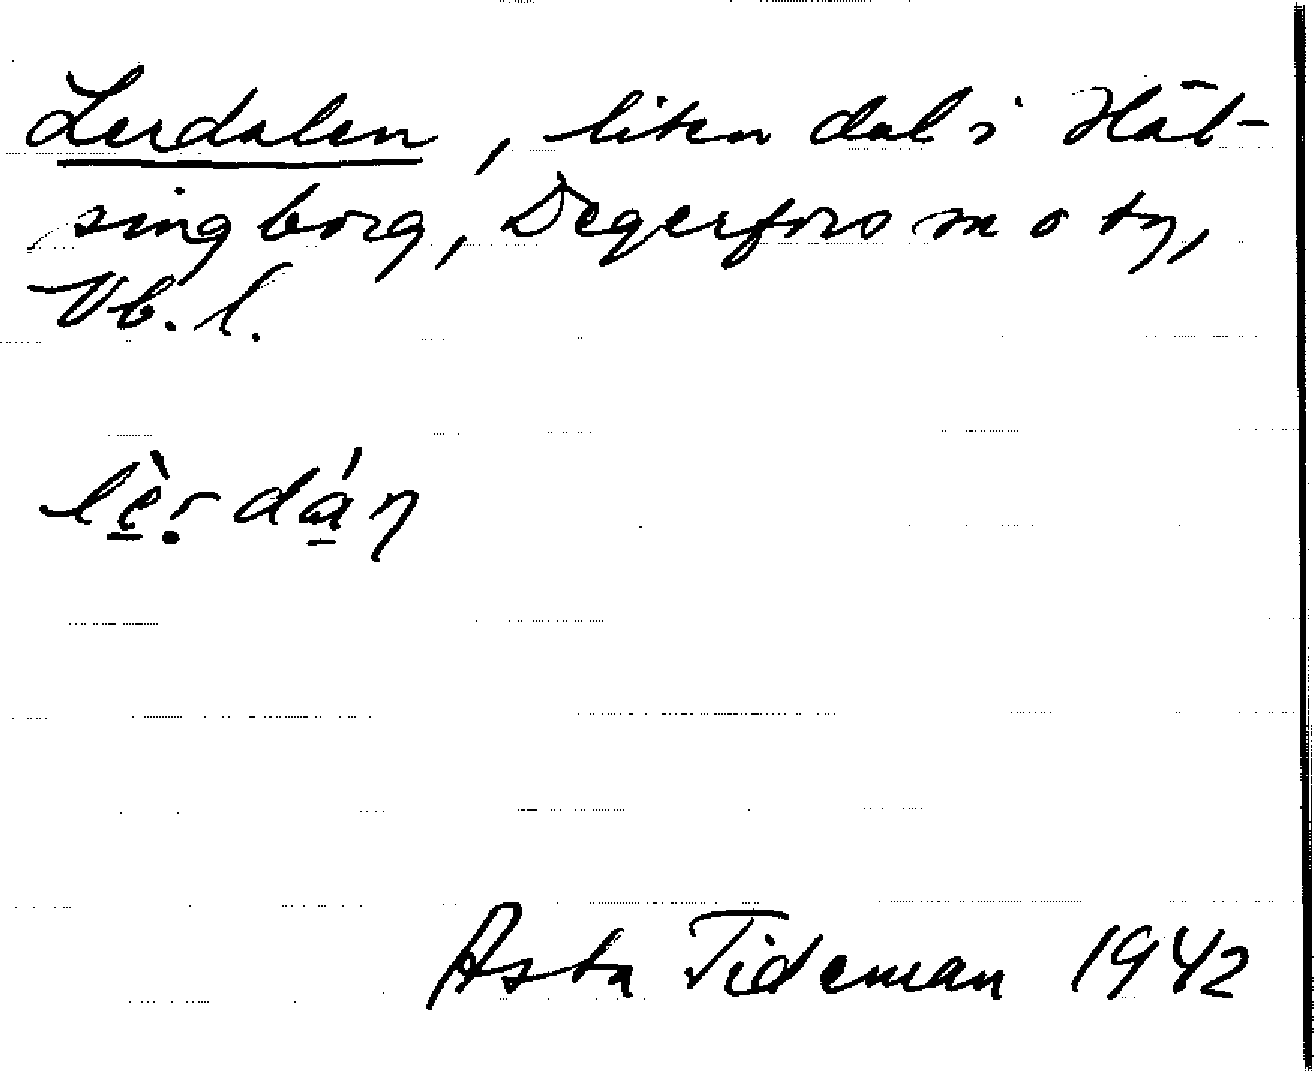 Lerdalen, liten dal i Häl-
singborg, Degerfors sn o tg,
Vb. l.
lè̠ṛdá̠n
Asta Tideman 1942